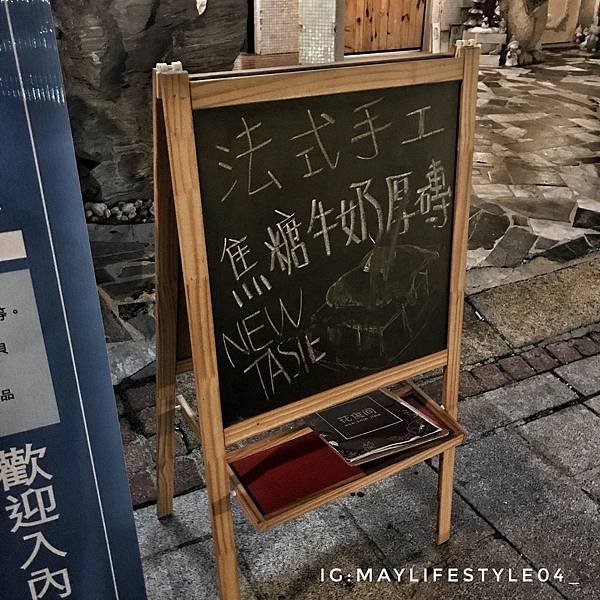 法式手工
焦糖牛奶厚磚
NEW
TASTE
花徊間
等。
貝
品
歡迎入內
IG:MAYLIFESTYLE04_